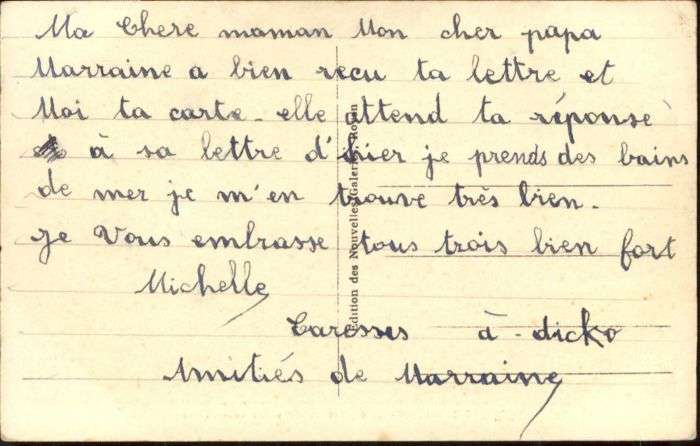 Ma Chere maman Mon cher papa
Marraine a bien reçu ta lettre et
Moi ta carte - elle attend ta réponse
à sa lettre d'hier je prends des bains
de mer je m'en trouve très bien.
je Vous embrasse tous trois bien fort
Michelle
Caresses à - dicko
Amitiés de Marraine
Edition des Nouvelles Galeries, Rouen